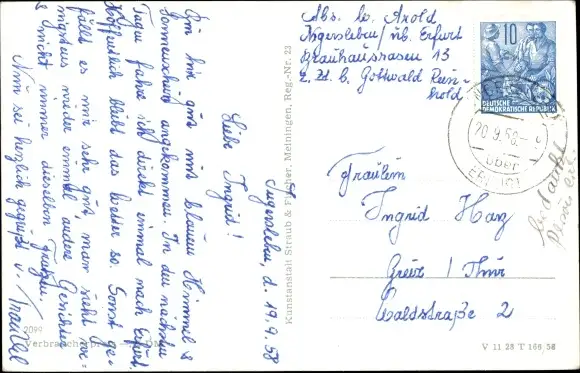 Ingersleben d. 19.9.58
Liebe Ingrid!
Bin hier gut mit blauem Himmel &
Sonnenschein angekommen. In den nächsten
Tagen fahre ich direkt einmal nach Erfurt.
Hoffentlich bleibt das Wetter so. Sonst ge-
fällt es mir sehr gut, man sieht
wieder einmal andere Gesichter
& nicht immer dieselben
Nun sei herzlich gegrüßt v. Traudel
2099
Kunstanstalt Straub & Fischer, Meiningen, Reg.-Nr. 23
Abs. b. Arold
Ingersleben/üb. Erfurt
Brauhausrasen 13
z. Zt. b. Gottwald Rein-
hold
10
DEUTSCHE
DEMOKRATISCHE REPUBLIK
20.9.58
über
ERFURT
Fräulein
Ingrid Harz
Greiz / Thür
Waldstraße 2
V 11 28 T 166/58